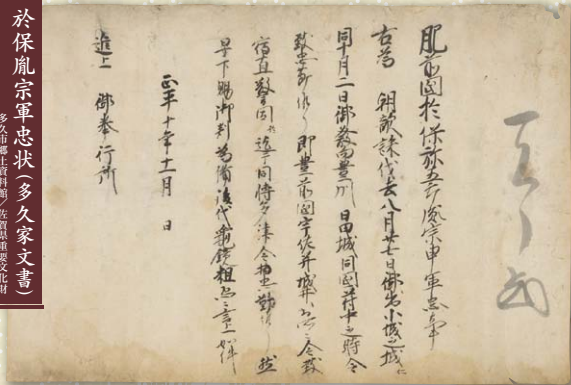 於保胤宗軍忠状(多久家文書)
多久市郷土資料館/佐賀県重要文化財
肥前国於保孫五郎胤宗申軍忠事
右為 朝敵誅伐去八月廿七日御出小城之城
同十月二日御発向豊州 日田城同国
之時令
致忠節候 即豊前国宇佐并城井
令致
宿直警固 博多津令 忠勤候 然
早下賜御判為備後代亀鏡粗 言上如件
正平十年十一月 日
進上 御奉行所